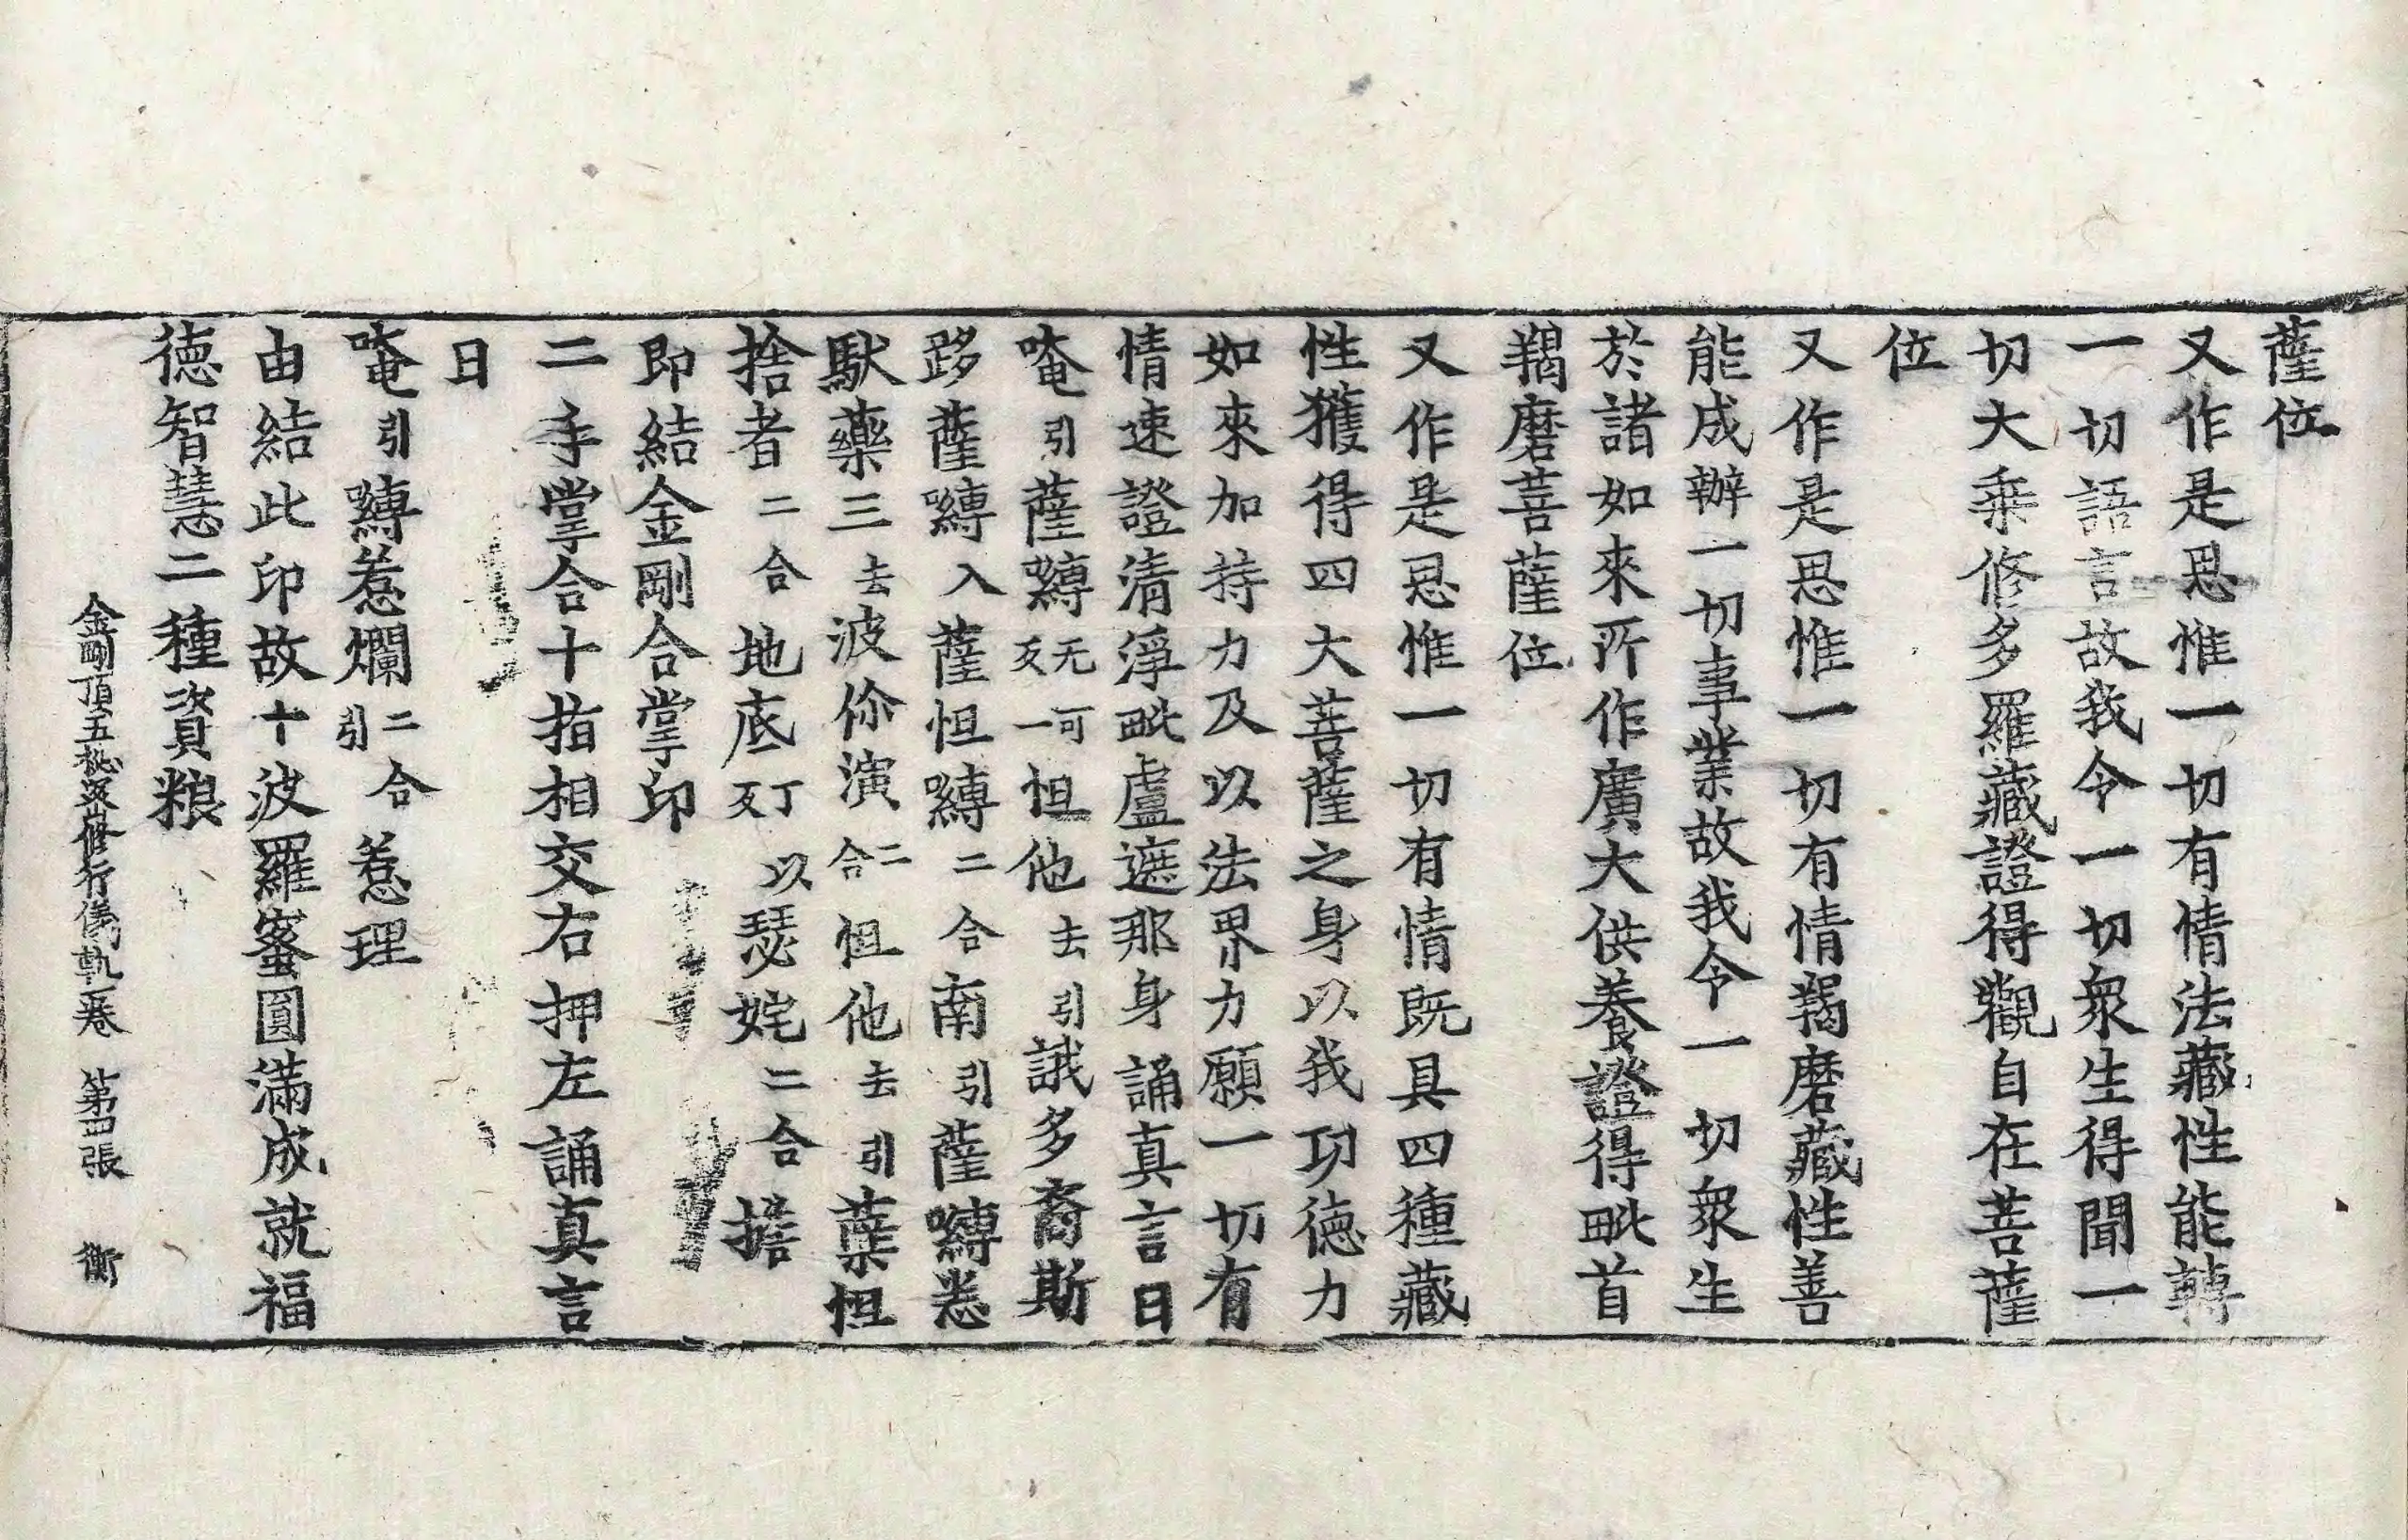 薩位
又作是思惟一切有情法藏性能轉
一切語言故我令一切衆生得聞一
切大乘修多羅藏證得觀自在菩薩
位
又作是思惟一切有情羯磨藏性善
能成辦一切事業故我令一切衆生
於諸如來所作廣大供養證得毗首
羯磨菩薩位
又作是思惟一切有情既具四種藏
性獲得四大菩薩之身以我功德力
如來加持力及以法界力願一切有
情速證清淨毗盧遮那身誦真言曰
唵引薩嚩无可反一怛他去引誐多裔斯
跢薩嚩入薩怛嚩二合南引薩嚩悉
馱藥三去波你演二合怛他去引蘖怛
捨者二合地底丁以反瑟姹二合擔
即結金剛合掌印
二手掌合十指相交右押左誦真言
曰
唵引嚩惹爛二合引惹理
由結此印故十波羅蜜圓滿成就福
德智慧二種資粮
金剛頂五秘密修行儀軌一卷 第四張 衡